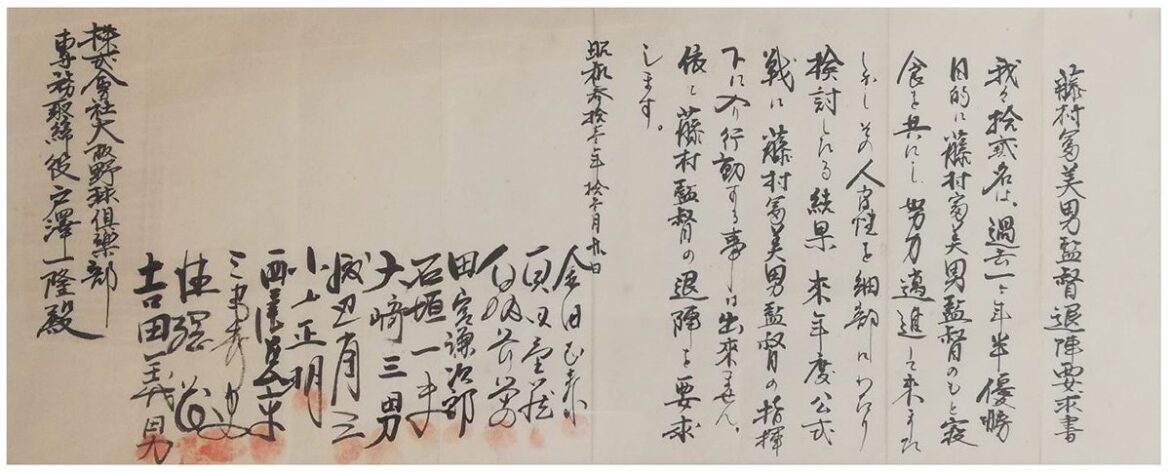 藤村冨美男監督退陣要求書
我々拾弐名は、過去一ヶ年半優勝
目的に藤村冨美男監督のもと寝
食を共にし努力邁進して来ました
しかしその人間性を細部にわたり
検討したる結果来年度公式
戦に藤村冨美男監督の指揮
下に入り行動する事は出来ません。
依て藤村監督の退陣を要求
します。
昭和参拾壱年拾壱月
金田正泰
真田重蔵
田宮謙次郎
石垣一夫
大崎三男
小山正明
三宅秀史
徳網茂
吉田義男
株式會社大阪野球倶楽部
専務取締役戸澤一隆殿